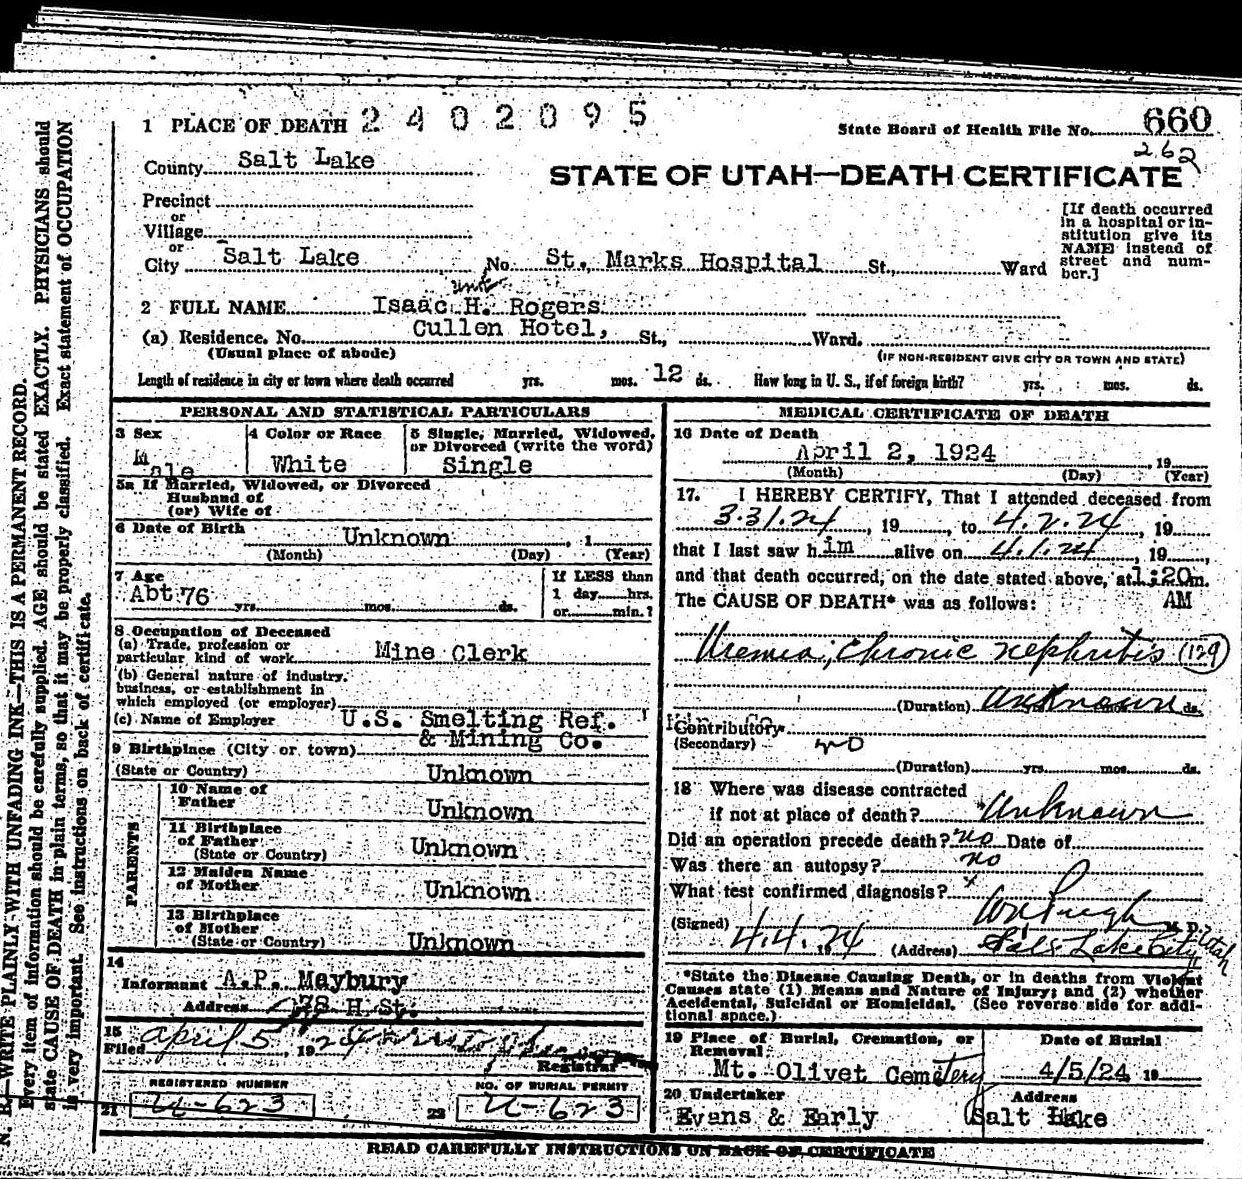 1 PLACE OF DEATH 2402095
State Board of Health File No. 660
262
County Salt Lake
STATE OF UTAH—DEATH CERTIFICATE
Precinct
or
Village
or
City Salt Lake No. St. Marks Hospital St., Ward
[If death occurred
in a hospital or in-
stitution give its
NAME instead of
street and num-
ber.]
2 FULL NAME Isaac H. Rogers
(a) Residence. No. Cullen Hotel, St., Ward.
(Usual place of abode) (IF NON-RESIDENT GIVE CITY OR TOWN AND STATE)
Length of residence in city or town where death occurred yrs. mos. 12 ds. How long in U. S., if of foreign birth? yrs. mos. ds.
PERSONAL AND STATISTICAL PARTICULARS
3 Sex
Male
4 Color or Race
White
5 Single, Married, Widowed,
or Divorced (write the word)
Single
5a If Married, Widowed, or Divorced
Husband of
(or) Wife of
6 Date of Birth Unknown, 1
(Month) (Day) (Year)
7 Age
Abt 76 yrs. mos. ds.
If LESS than
1 day hrs.
or min.?
8 Occupation of Deceased
(a) Trade, profession or
particular kind of work Mine Clerk
(b) General nature of industry,
business, or establishment in
which employed (or employer)
(c) Name of Employer U.S. Smelting Ref.
& Mining Co.
9 Birthplace (City or town)
(State or Country) Unknown
PARENTS
10 Name of
Father Unknown
11 Birthplace
of Father
(State or Country) Unknown
12 Maiden Name
of Mother Unknown
13 Birthplace
of Mother
(State or Country) Unknown
14
Informant A.P. Maybury
Address 78 H St.
15
Filed April 5, 1924
Registrar
REGISTERED NUMBER
21 U-623
NO. OF BURIAL PERMIT
22 U-623
MEDICAL CERTIFICATE OF DEATH
16 Date of Death
April 2, 1924, 19
(Month) (Day) (Year)
17. I HEREBY CERTIFY, That I attended deceased from
3.31.24, 19, to 4.2.24, 19
that I last saw him alive on 4.1.24, 19,
and that death occurred, on the date stated above, at 1:20m.
AM
The CAUSE OF DEATH* was as follows:
Uremia, chronic nephritis (129)
(Duration) Unknown ds.
Contributory
(Secondary) no
(Duration) yrs. mos. ds.
18 Where was disease contracted
if not at place of death? Unknown
Did an operation precede death? no Date of
Was there an autopsy? no
What test confirmed diagnosis?
(Signed) Pugh M. D.
4.4.1924 (Address) Salt Lake City, Utah
*State the Disease Causing Death, or in deaths from Violent
Causes state (1) Means and Nature of Injury; and (2) whether
Accidental, Suicidal or Homicidal. (See reverse side for addi-
tional space.)
19 Place of Burial, Cremation, or
Removal
Mt. Olivet Cemetery
Date of Burial
4/5/24 19
20 Undertaker
Evans & Early
Address
Salt Lake
READ CAREFULLY INSTRUCTIONS ON BACK OF CERTIFICATE
N. B.—WRITE PLAINLY WITH UNFADING INK—THIS IS A PERMANENT RECORD.
Every item of information should be carefully supplied. AGE should be stated EXACTLY. PHYSICIANS should
state CAUSE OF DEATH in plain terms, so that it may be properly classified. Exact statement of OCCUPATION
is very important. See instructions on back of certificate.